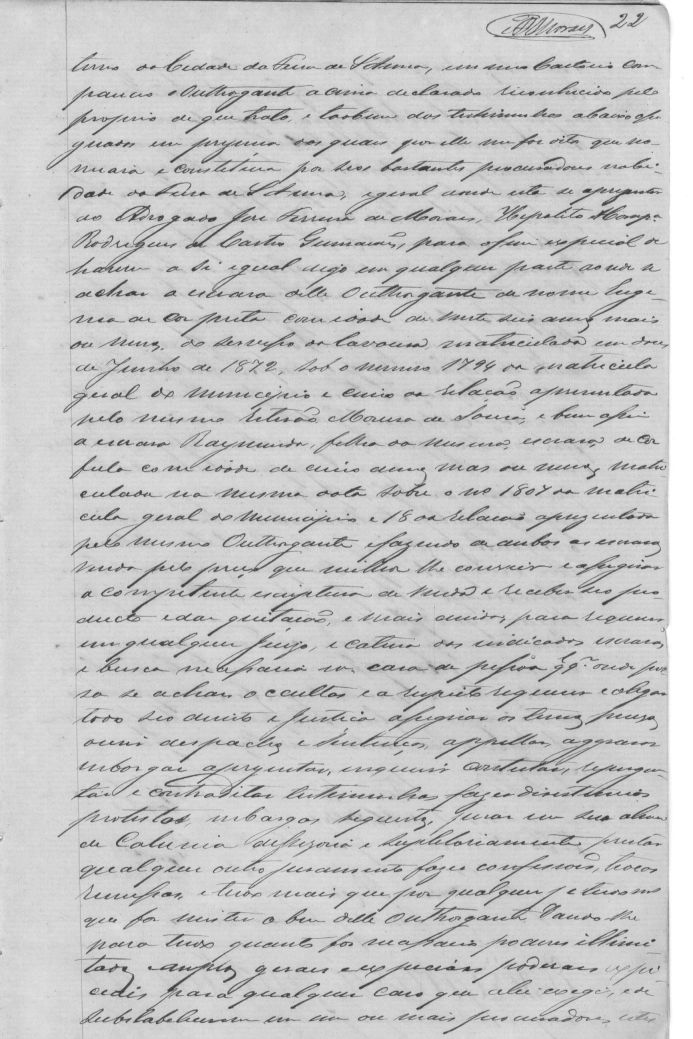 22
termo da Cidade da Feira de S. Anna, em meu Cartorio com
pareceo o Outhorgante acima declarado reconhecido pelo
proprio de que trato, e tambem das testimunhas abaixo assi
gnados em presença das quais por elle me foi dito que no
meava e constetuia por seos bastantes procuradores na Ci
dade da Feira de S. Anna, e geral aonde esta se aprezentar
ao Advogado José Ferreira de Moraes, Hepolito
Rodrigues de Castro Guimarães, para o fim especial de
haver a si e qual seja em qualquer parte aonde se
achar a escrava delle Outhorgante de nome Euge
nia de cor preta com idade de vinte seis annos mais
ou menos, do servisso da lavoura, matriculada em doze
de Junho de 1872, sob o numero 1794 da matricula
geral do Municipio e cinco da relação aprezentada
pelo mesmo Estevão Moura de e bem assim
a escrava Raymunda, filha da mesma escrava, de cor
fula com idade de cinco annos mas ou menos, matri
culada na mesma data sobre o no 1807 da matri
cula geral do Municipio e 18 da relação aprezentada
pelo mesmo Outhorgante e fazendo de ambas as escravas
venda pelo preço que milhor lhe convier e assignar
a competente escriptura de venda e receber seo pro
ducto e dar quitação, e mais ainda, para requerer
em qualquer Juizo, a catura das indicadas escravas
e busca necessaria na casa da pessôa q.q.r onde por
ra se achar ocultas e a respeito requerer e alegar
todo seo direito e Justica assignar os termos, precizos
ouvir despachos e Sentenças, appellar, aggravar
embargar aprezentar, inquirir contestar, repergun
tar e contraditar testimunhas fazer dezistencias
protestos, embargos sequestros, jurar em sua alma
de Calunia decizoria e supletoriamente prestar
qualquer outro juramento fazer confissões, trocas
remessas, e tudo mais que por qualquer
que for mister a bem delle Outhorgante dando lhe
para tudo quanto for necessario poderes illimi
tados, amplos, gerais e expeciais poderes expe
ciais para qualquer caso que ahi exegir, e de
substabelecerem em um ou mais procuradores, estes